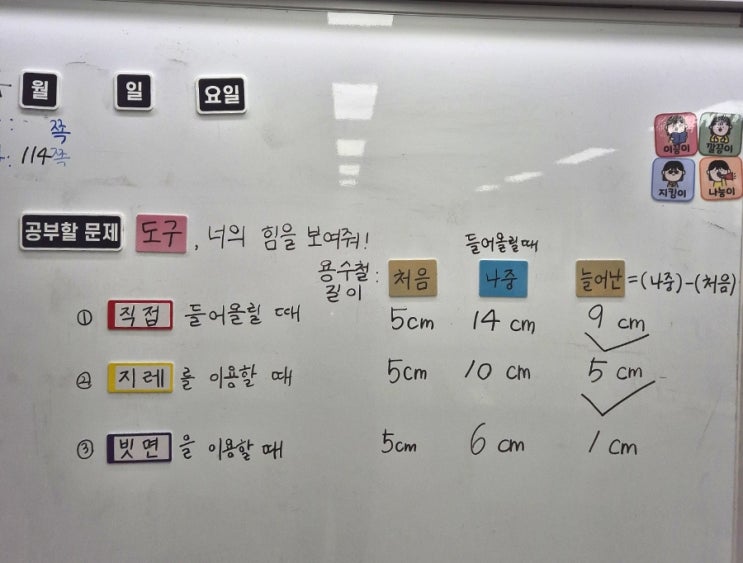 월 일 요일
쪽
114쪽
이끔이 깔끔이
지킴이 나눔이
공부할 문제 도구, 너의 힘을 보여줘!
들어올릴때
용수철 길이 : 처음 나중 늘어난=(나중)-(처음)
① 직접 들어올릴 때 5cm 14 cm 9 cm
② 지레를 이용할 때 5cm 10 cm 5 cm
③ 빗면을 이용할 때 5cm 6 cm 1 cm